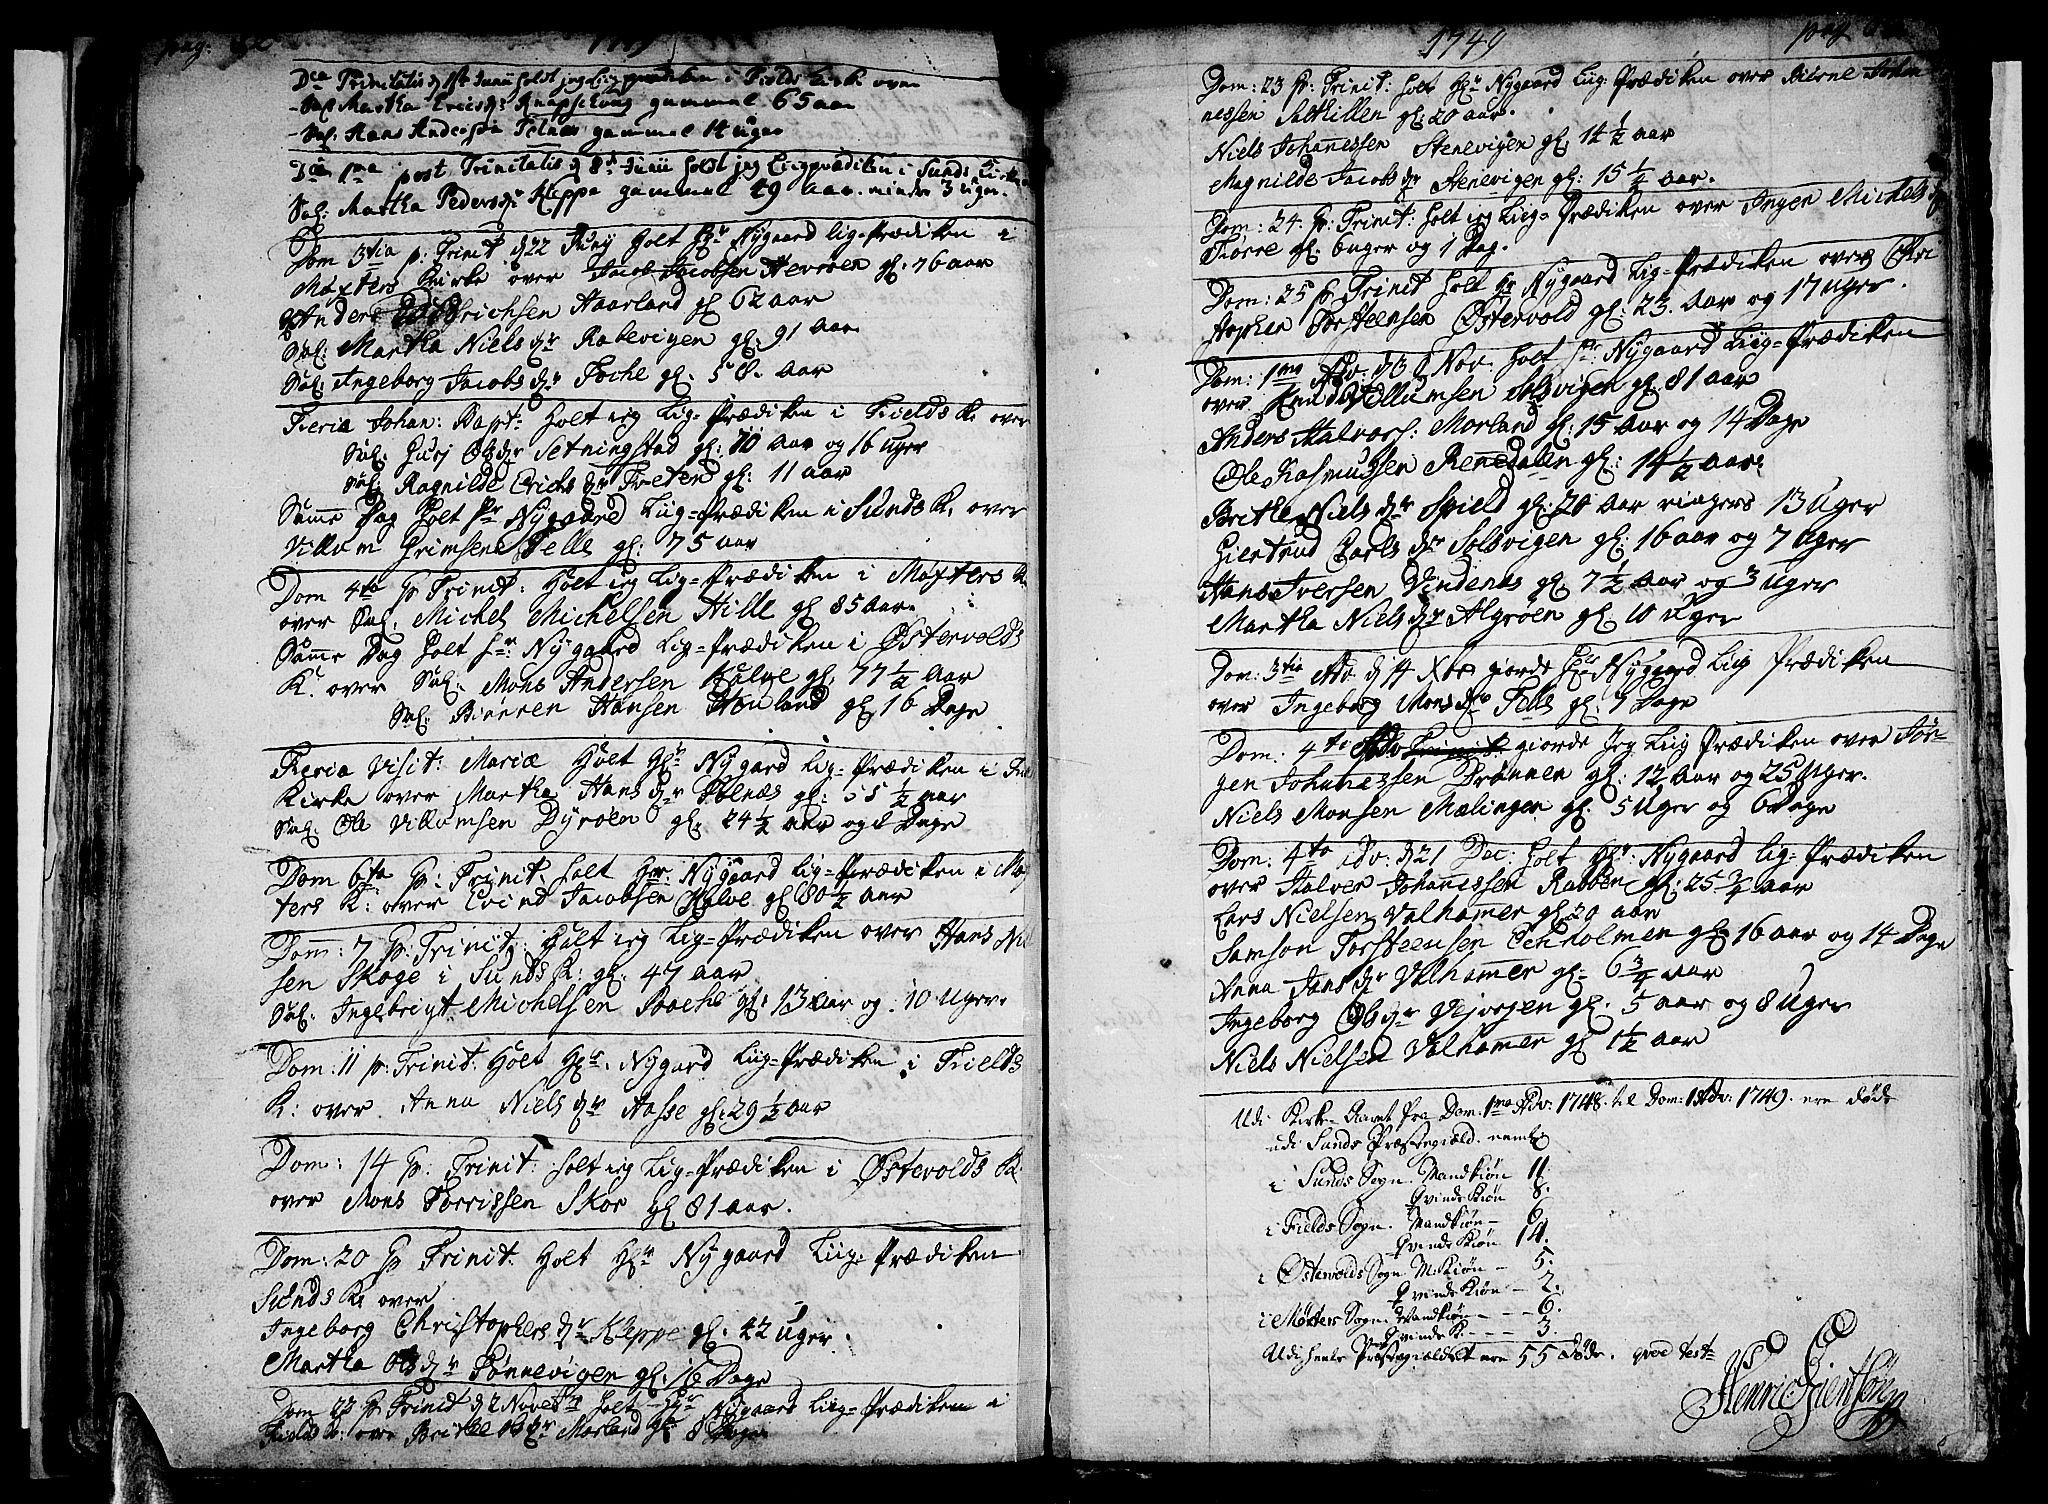 pag:
1749
Dca Trinitatis d 1st Junii holdt jeg Liigprædiken i Fields Kirke over
Sal. Martha Erics dr Knapschoug gammel 65 aar
Sal. Hans Andersen Telnes gammel 14 uger
Dca 1ma post Trinitatis d 8de Junii holdt jeg Liigprædiken i Sunds Kirke
Sal: Martha Peders dr Kleppe gammel 49 aar. minder 3 uger.
Dom 3tia p: Trinit d 22 Juny holt Hr Nygaard lig-Prædiken i
Møxters Kirke over Jacob Jacobsen Hevrøen gl. 76 aar
Anders Erichsen Haarland gl 62 aar
Sal: Martha Niels dr Rabevigen gl. 91 aar
Sal: Ingeborg Jacobs dr Foche gl. 58. aar
Feria Johan: Bapt: holt ieg Lig-Prædiken i Fields K. over
Sal. Gurj Ols dr Setningstad gl. 70 aar og 16 uger
Sal. Ragnilde Erichs dr Tveten gl: 11 aar
Samme Dag holt Hr Nygaard Liig-Prædiken i Sunds K. over
Villum Grimsen Telle gl: 75 aar
Dom 4to p Trinit: holt ieg Lig-Prædiken i Møxters K.
over Sal. Michel Michelsen Hille gl 85 aar.
Samme Dag holt Hr Nygaard Lig-Prædiken i Østervolds
K. over Sal. Mons Andersen Kalve gl. 77 1/2 aar
Sal: Biønnen Hansen Houland gl 16 Dage
Feria Visit: Mariæ Holt Hr Nygaard Lig-Prædiken i
Kirke over Martha Hans dr Tolnæs gl: 55 1/2 aar
Sal. Ole Villumsen Dyrøen gl. 24 1/2 aar og Dage
Dom 6ta p: Trinit. holt Hr. Nygaard Lig-Prædiken i Møx
ters K: over Evind Jacobsen Kalve gl 80 1/2 aar
Dom: 7 p: Trinit: Holt ieg Lig-Prædiken over Hans Niel
sen Skoge i Sunds K: gl. 47 aar
Sal: Ingebrigt Michelsen gl. 13 aar og 10 uger.
Dom: 11 p: Trinit: Holt Hr. Nygaard Liig-Prædiken i Fields
K: over Anna Niels dr Aasse gl. 29 1/2 aar
Dom: 14 p. Trinit: holt ieg Lig-Prædiken i Østevolds K.
over Mons Torrissen Skor gl 81 aar.
Dom: 20 p Trinit: Holt Hr Nygaard Liig-Prædiken
Sunds K. over
Ingeborg Christophers dr Kleppe gl. 42 uger.
Martha Ols dr Tønnevigen gl. 16 Dage
Dom 22 p Trinit d 2 Novembr holt Hr Nygaard Liig-Prædiken i
Fields K: over Brithe Ols dr Morland gl. 8 Dage
1749
pag
Dom: 23 p: Trinit: holt Hr Nygaard Liig-Prædiken over Biørne Johan
nessen Salthillen gl: 20 aar.
Niels Johanessen Stenevigen gl: 14 1/2 aar
Magnilde Jacobs dr Stenevigen gl: 15 1/4 aar.
Dom: 24 p: Trinit: holt ieg Liig-Prædiken over Ingen Michels dr
Tiørre gl: 6 uger og 1 Dag.
Dom: 25 p Trinit holt Hr Nygaard Lig-Prædiken over Chri
stophen Torsteensen Østervold gl: 23. aar og 17 uger.
Dom: 1ma Adv. d 30 Nov. holt Hr Nygaard Liig-Prædiken
over Knud Villumsen Solsvigen gl: 81 aar
Anders Halvors: Morland gl: 15 aar og 14 Dage
Ole Rasmussen Renedalen gl: 14 1/2 aar
Brithe Niels dr Spield gl: 20 aar ringers 13 uger
Giertrud Carls dr Solsvigen gl: 16 aar og 7 uger
Hans Iversen Vindenes gl. 7 1/2 aar og 3 uger
Martha Niels dr Algrøen gl. 10 uger
Dom: 3tia Adv d 14 Xbr giorde Hr Nygaard Liig Prædiken
over Ingeborg Mons dr Telle gl: 7 Dage
Dom: 4te Adv Trinit giorde Jeg Liig Prædiken over Jør-
gen Johanessen Trønnen gl: 12 aar og 25 uger.
Niels Monsen Mælingen gl. 5 uger og 6 Dage
Dom: 4to Adv: d 21 Dec: holt Hr: Nygaard lig-Prædiken
over Halver Johanessen Rabben gl: 25 3/4 aar
Lars Nielsen Valhamer gl. 29 aar
Samson Torsteensen Echholmen gl: 16 aar og 14 Dage
Anna Jans dr Valhamer gl. 6 3/4 aar
Ingeborg Ols dr gl. 5 aar og 8 uger
Niels Nielsen Valhamer gl 1 1/2 aar
Udi Kirke-Aaret fra Dom: 1ma Adv: 1748 til Dom: 1 Adv: 1749. ere døde
udi Sunds Præstegiæld. neml:
i Sunds Sogn. Mandkiøn 11
Qvindekiøn 8.
i Fields Sogn. Mandkiøn - 6
Qvindekiøn 14.
i Østervolds Sogn M.kiøn - 5.
Qvindekiøn - 2.
i Møxters Sogn Mandkiøn - - - 6.
Qvinde K. - - - 3.
Udi heele Præstegiældet ere 55 Døde. qvod test:
Henric Gientsøn